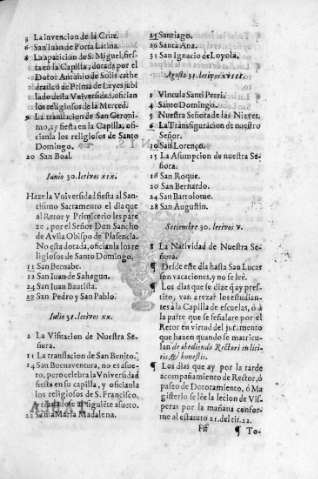 3 La inuencion de la Cruz.
6 San Iuan de Porta Latina.
8 La aparicion de S. Miguel, fies-
ta en la Capilla, dotada por el
Dotor Antonio de Solis cathe
dratico de Prima de Leyes jubi
lado desta Vniuersidad, oficiān
los religiosos de la Merced.
9 La translacion de San Geroni-
mo, ay fiesta en la Capilla, oficiā
los religiosos de Santo
Domingo.
20 San Boal.
Iunio 30. letivos xix.
Haze la Vniuersidad fiesta al San-
tissimo Sacramento el dia que
al Retor y Primicerio les pare
ce, por el Señor Don Sancho
de Auila Obispo de Plasencia.
No es dotada, oficianla los re
ligiosos de Santo Domingo.
11 San Bernabe.
12 San Iuan de Sahagun.
24 San Iuan Bautista.
29 San Pedro y San Pablo.
Iulio 31. letivos xx.
2 La Visitacion de Nuestra Se-
ñora.
11 La translacion de San Benito.
14 San Buenauentura, no es asue-
to, pero celebra la Vniuersidad
fiesta en su capilla, y oficianla
los religiosos de S. Francisco,
22 Santa Maria Madalena.
25 Santiago.
26 Santa Ana.
31 San Ignacio de Loyola.
Agosto 31. letivos xviii.
1 Vincula Santi Petri.
4 Santo Domingo.
5 Nuestra Señora de las Nieves.
6 La Transfiguracion de nuestro
Señor.
10 San Lorenço.
15 La Asumpcion de nuestra Se-
ñora.
16 San Roque.
20 San Bernardo.
24 San Bartolome.
28 San Augustin.
Setiembre 30. letivos v.
8 La Natiuidad de Nuestra Se-
ñora.
¶ Desde este dia hasta San Lucas
son vacaciones, y no se lee.
¶ Los dias que se dize q̄ ay pres-
tito, van a rezar los estudian-
tes a la Capilla de escuelas, ó a
la parte que se señalare por el
Retor en virtud del juramento
que hazen quando se matricu-
lan de obediendo Rectori in lici-
tis, & honestis.
¶ Los dias que ay por la tarde
acompañamiento de Rector, ó
paseo de Dotoramiento, ó Ma
gisterio se lee la lecion de Vis-
peras por la mañana confor-
me al estatuto 21. del tit. 22.
Fff ¶ To-